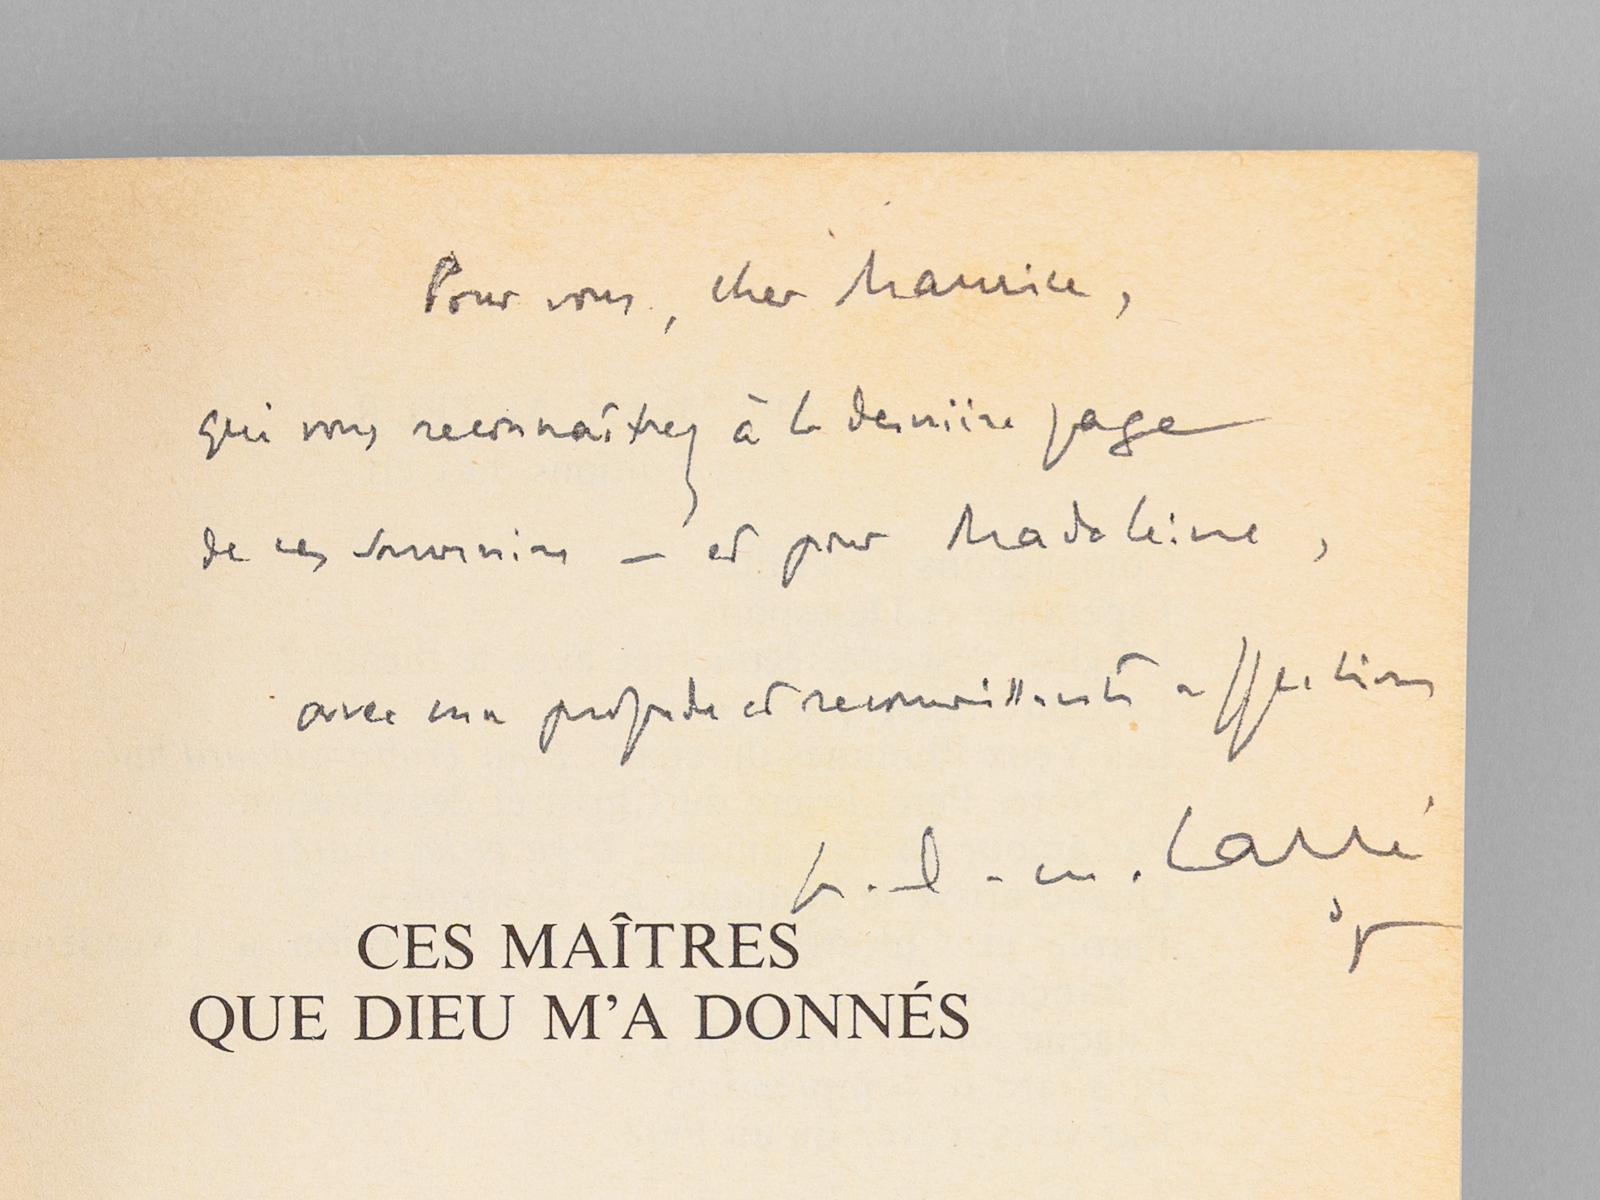 Pour vous, cher Maurice,
qui vous reconnaîtrez à la dernière page
de ces souvenirs — et pour Madeleine,
avec ma profonde et reconnaissante affection
fr. a.-m. Carré
op
CES MAÎTRES
QUE DIEU M'A DONNÉS